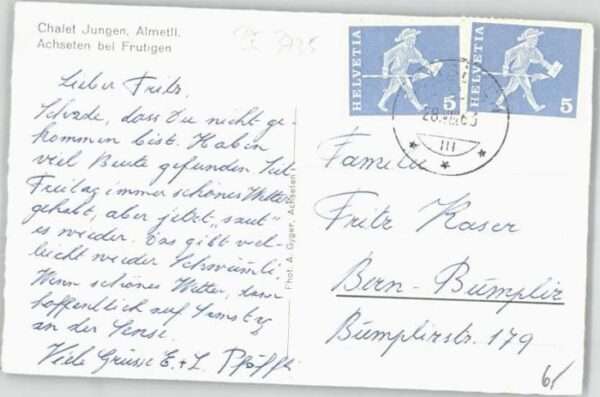 Chalet Jungen, Almetli.
Achseten bei Frutigen
Lieber Fritz,
Schade, dass Du nicht ge-
kommen bist. Hab in
viel Beute gefunden. Seit
Freitag immer schönes Wetter
gehabt, aber jetzt "saut"
es wieder. Das gibt viel-
leicht wieder Schwümli.
Wenn schönes Wetter, dann
hoffentlich auf Samstag
an der Sense.
Viele Grüsse E. + L. Pfäffli
Phot. A. Gyger, Achseten
HELVETIA 5
HELVETIA 5
III
Familie
Fritz Kaser
Bern-Bümpliz
Bümplizstr. 179
6/